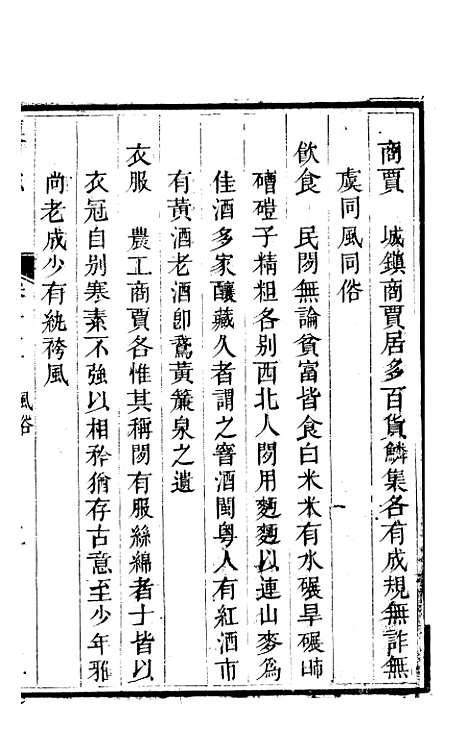 商賈　城鎮商賈居多百貨鱗集各有成規無詐無
虞同風同俗
飲食　民間無論貧富皆食白米米有水碾旱碾㗐
磠磴子精粗各别西北人間用麵麵以連山麥為
佳酒多家釀藏久者謂之窨酒閩粤人有紅酒市
有黃酒老酒卽鵞黃簾泉之遺
衣服　農工商賈各惟其稱間有服絲綿者士皆以
衣冠自别寒素不強以相矜猶存古意至少年雅
尚老成少有紈袴風
風俗